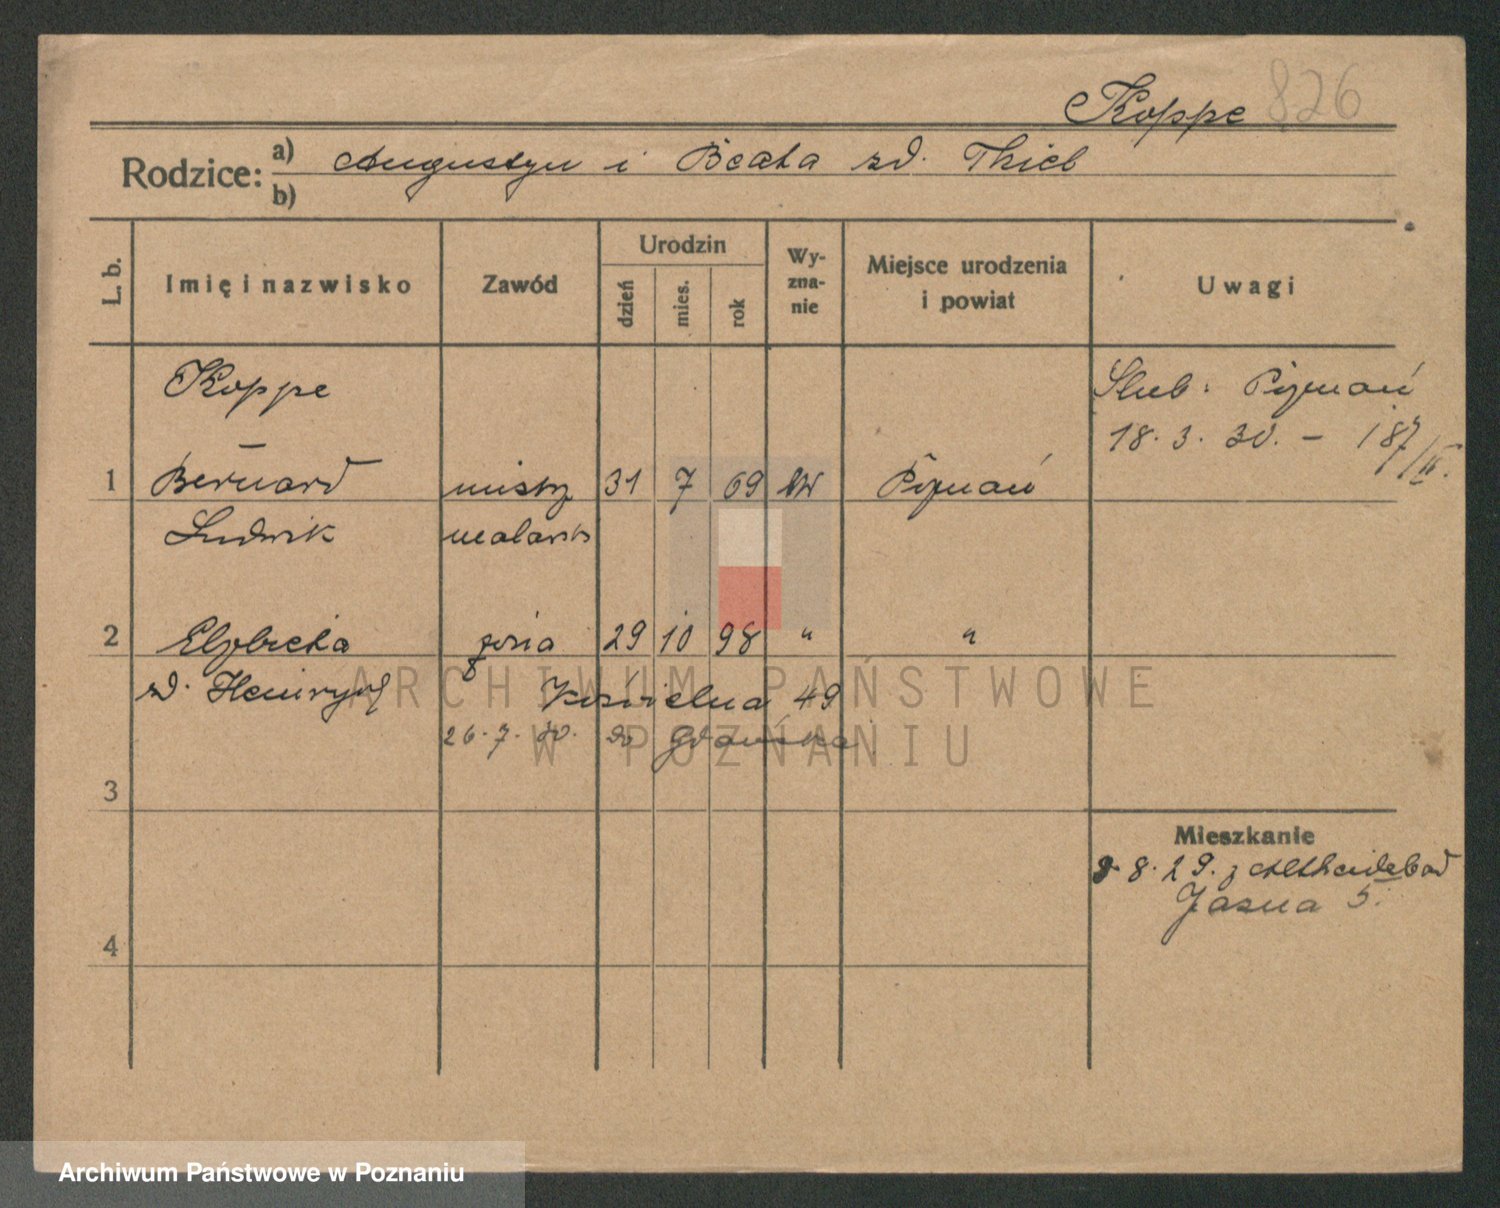 Koppe 826
Rodzice: a) Augustyn i Beata zd. Thiel
b)
L. b.
Imię i nazwisko
Zawód
Urodzin
dzień
mies.
rok
Wy-
zna-
nie
Miejsce urodzenia
i powiat
Uwagi
Koppe
Ślub: Poznań
18. 3. 30. – 187/III.
1 Bernard mistrz 31 7 69 Poznań
Ludwik malarski
2 Elżbieta żona 29 10 98 " "
zd. Heinrych Kościelna 49
26. 7. 30. do Gdańska
3
Mieszkanie
9. 8. 29. z Altheidebad
Jasna 5.
4
ARCHIWUM PAŃSTWOWE
W POZNANIU
Archiwum Państwowe w Poznaniu